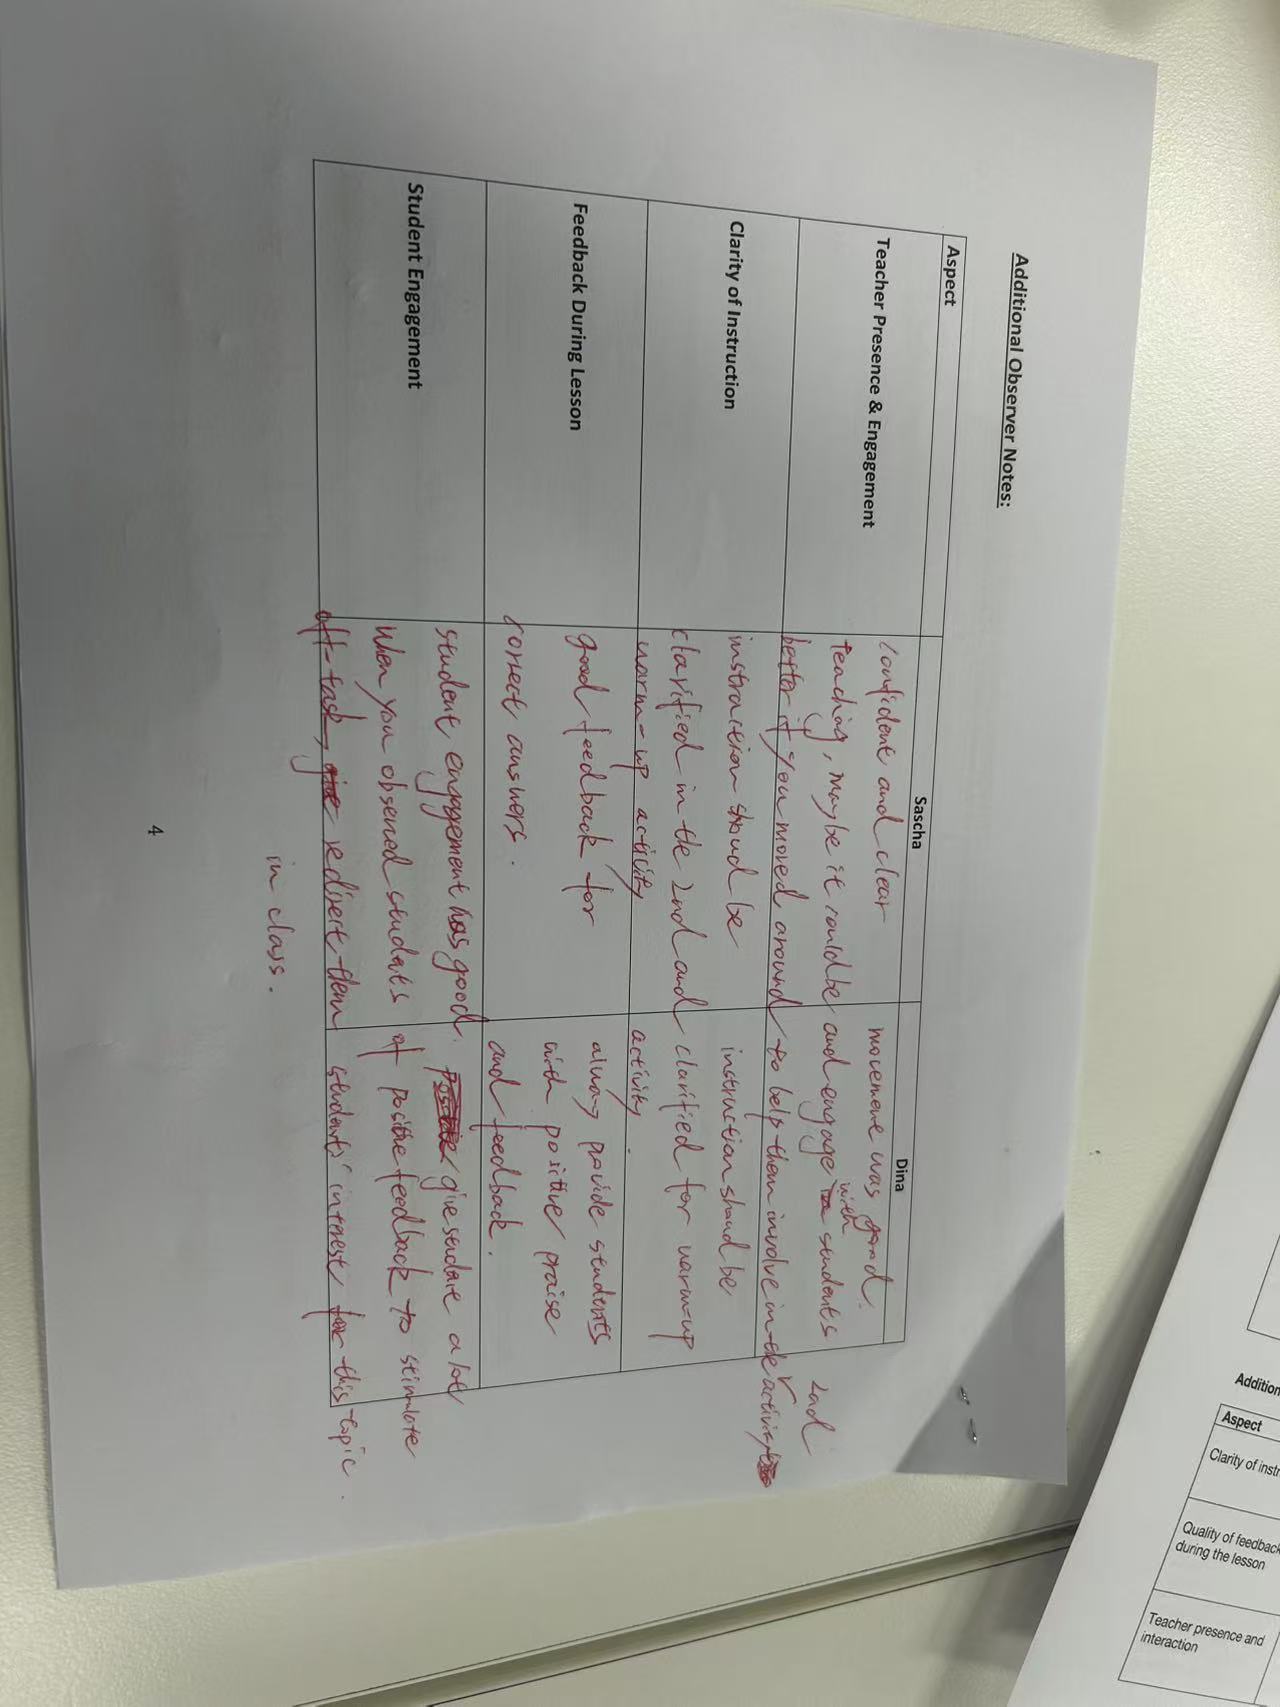 Additional Observer Notes:
Aspect
Sascha
Dina
Teacher Presence & Engagement
confident and clear
teaching, maybe it could be
better if you moved around
movement was good.
and engage with students
to help them involve in the 2nd activity
Clarity of Instruction
instruction shoud be
clarified in the 2nd and
warm-up activity
instruction shoud be
clarified for warm-up
activity.
Feedback During Lesson
good feedback for
correct answers.
always provide students
with positive praise
and feedback.
Student Engagement
student engagement was good.
when you observed students
off-task, redirect them
in class.
give student a lot
of positive feedback to stimulate
students' interest for this topic.
4
Addition
Aspect
Clarity of instr
Quality of feedback
during the lesson
Teacher presence and
interaction